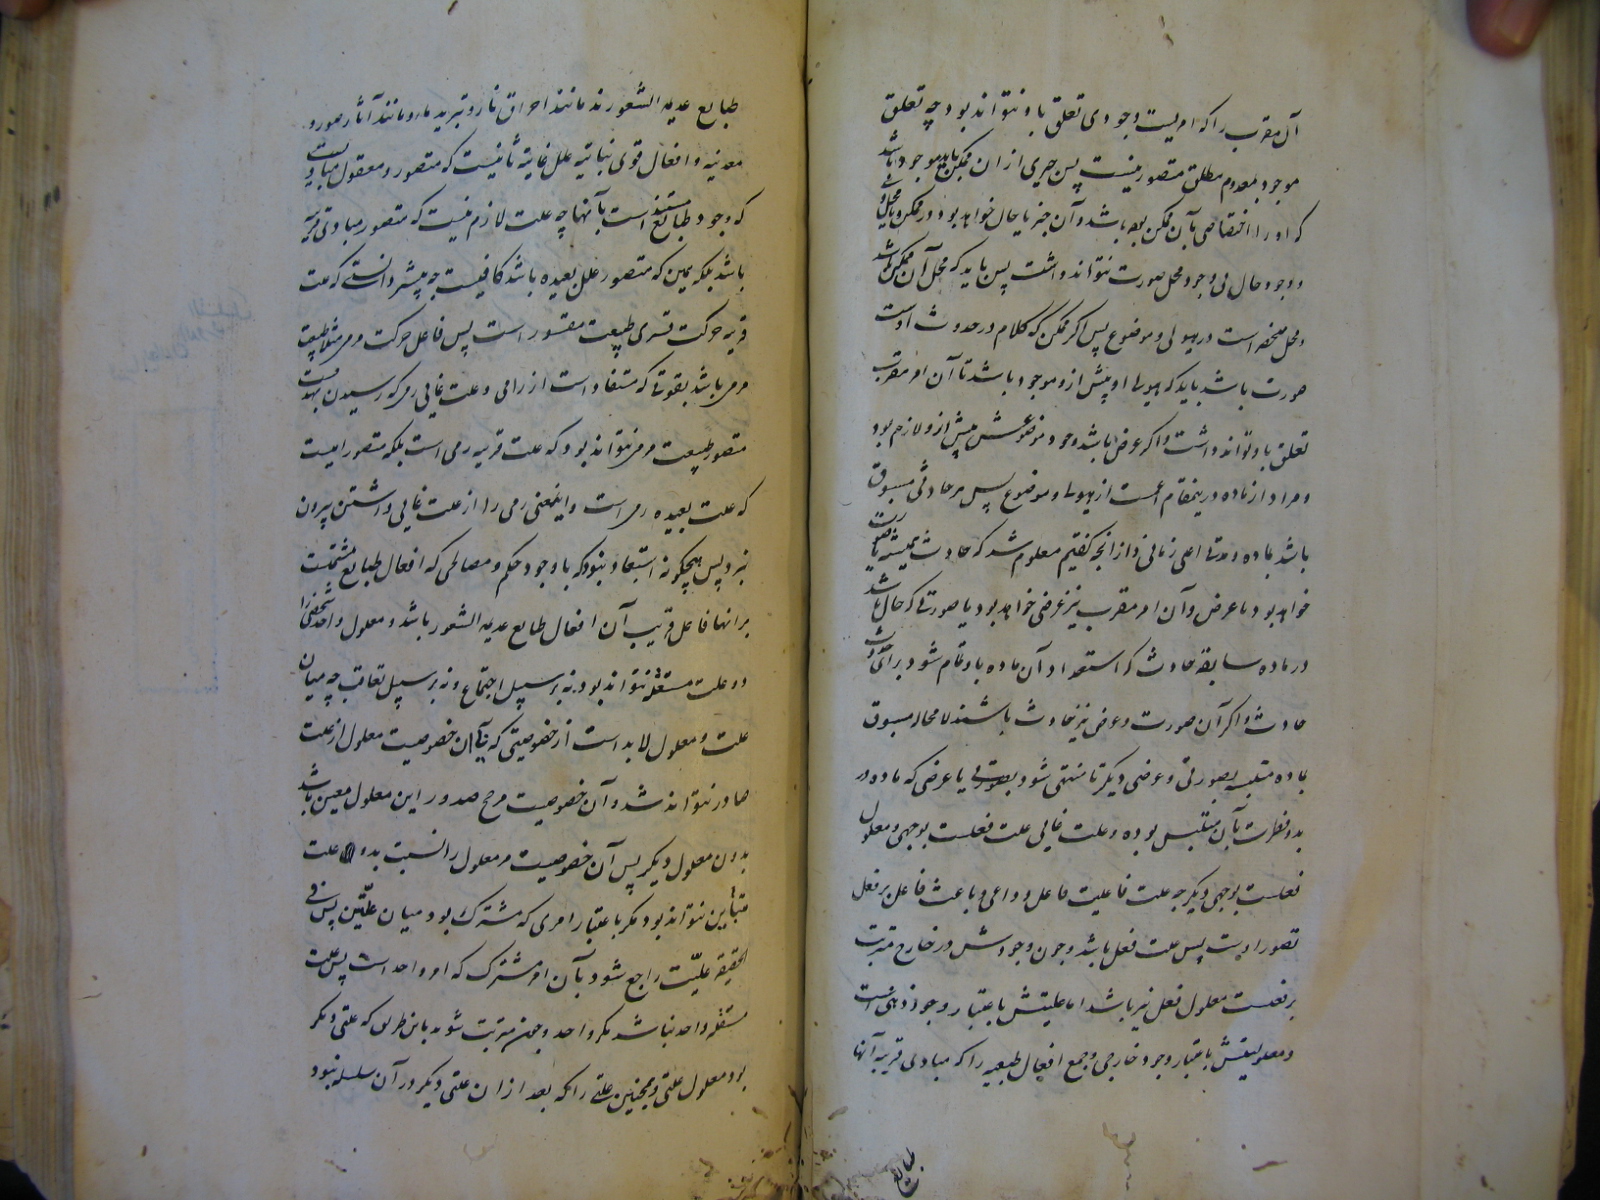 آن مقرب را که امریست وجودی تعلق باو نتواند بود چه تعلق
موجود بمعدوم مطلق متصور نیست پس چیزی از ان ممکن باید موجود باشد
که او را اختصاصی بآن ممکن بوده باشد وآن جز یا حال خواهد بود در ممکن یا محل
و وجود حال بی وجود محل صورت نتواند داشت پس باید که محل آن ممکن باشد
ومحل منحصر است در هیولی وموضوع پس اگر ممکن که کلام در حدوث اوست
صورت باشد باید که هیولی او پیش ازو موجود باشد تا آن امر مقرب
تعلق باو تواند داشت واگر عرض باشد وجود موضوعش پیش ازو لازم بود
ومراد از ماده درینمقام اعمست از هیولی وموضوع پس هر حادثی مسبوق
باشد بماده ومدتی اعنی زمانی وازانچه گفتیم معلوم شد که حادث همیشه یا صورت
خواهد بود یا عرض وآن امر مقرب نیز عرضی خواهد بود یا صورتی که حال باشد
در ماده سابقه حادث که استعداد آن ماده باو تمام شود برای حدوث
حادث واگر آن صورت وعرض نیز حادث باشند لامحاله مسبوق
بماده متلبسه بصورتی وعرضی دیگر تا منتهی شود بصورتی یا عرضی که ماده در
بدو فطرت بآن متلبس بوده وعلت غائی علت فعلست بوجهی ومعلول
فعلست بوجهی دیگر چه علت فاعلیت فاعل وداعی وباعث فاعل بر فعل
تصور اوست پس علت فعل باشد وچون وجودش در خارج مترتب
بر فعلست معلول فعل نیز باشد اما علیتش باعتبار وجود ذهنی است
ومعلولیتش باعتبار وجود خارجی وجمع افعال طبیعیه را که مبادی قریبه آنها
طبایع
طبایع عدیم الشعورند مانند احراق نار وتبرید ماء ومانند آثار صور
معدنیه وافعال قوی نباتیه علل غائیه ثابتست که متصور ومعقول مبادیست
که وجود طبایع مستند است بآنها چه علت لازم نیست که متصور مبادی قریبه
باشد بلکه همین که متصور علل بعیده باشد کافیست چه پیشتر دانستی که علت
قریبه حرکت قسری طبیعت مقسور است پس فاعل حرکت مرمی مثلا طبیعت
مرمی باشد بقوتی که مستفاد است از رامی وعلت غائی رمی که رسیدن بهدفست
متصور طبیعت مرمی نتواند بود که علت قریبه رمی است بلکه متصور رامیست
که علت بعیده رمی است واینمعنی رمی را از علت غائی داشتن بیرون
نبرد پس هیچگونه استبعاد نبود که با وجود حکم ومصالحی که افعال طبایع مشتملست
بر انها فاعل قریب آن افعال طبایع عدیم الشعور باشد ومعلول واحد شخصی را
دو علت مستقله نتواند بود نه بر سبیل اجتماع ونه بر سبیل تعاقب چه میان
علت ومعلول لابد است از خصوصیتی که بی آن خصوصیت معلول از علت
صادر نتواند شد وآن خصوصیت مرجح صدور این معلول معین باشد
بدون معلول دیگر پس آن خصوصیت مر معلول را نسبت بدو علت
متباین نتواند بود مگر باعتبار امری که مشترک بود میان علتین پس فی
الحقیقه علیت راجع شود بآن امر مشترک که امر واحد است پس علت
مستقله واحد نباشد مگر واحد وچون مترتب شوند باین طریق که علتی دیگر
بود معلول علتی وهمچنین علتی را که بعد از ان علتی دیگر در آن سلسله نبود